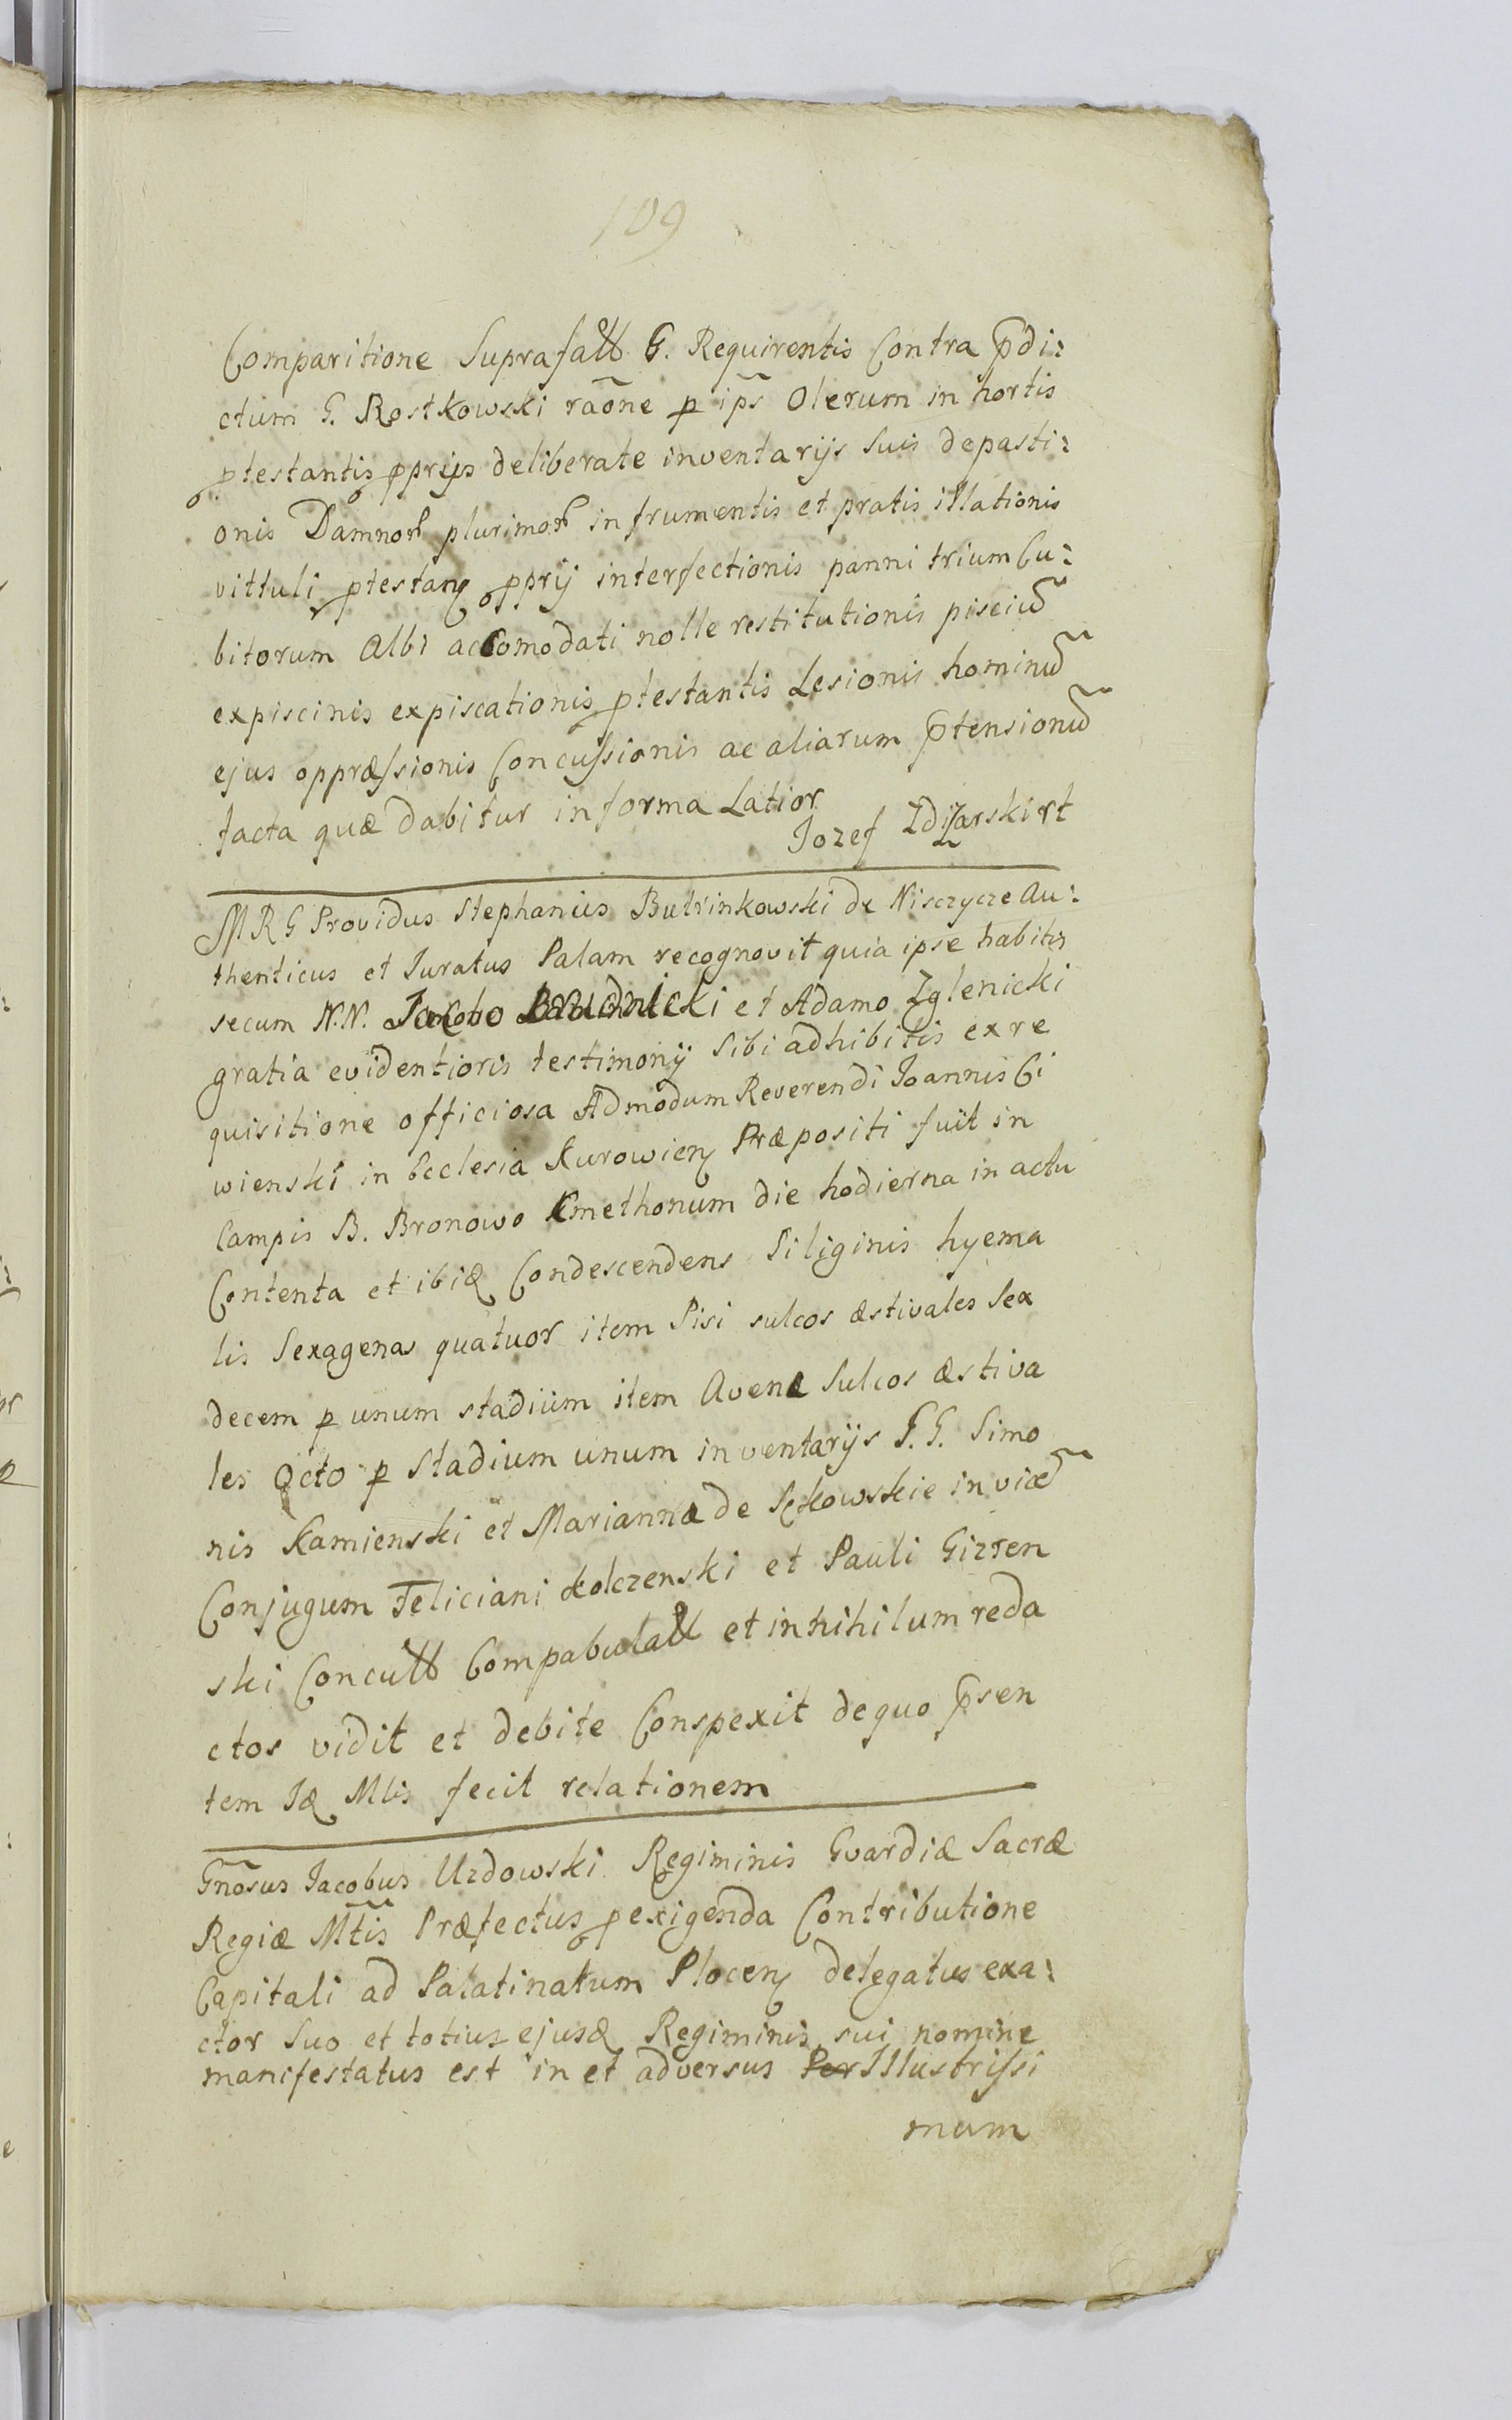 109
Comparitione Suprafatt G. Requirentis Contra p̄di:
ctum G. Rostkowski raōne p ip̄s Olerum in hortis
ptestantis pprijs deliberate inventarijs Suis depasti:
onis Damnor plurimor in frumentis et pratis illationis
vittuli ptestanŋ pprij interfectionis panni trium Cu:
bitorum Albi accomodati nolle restitutionis pisciū
expiscinis expiscationis ptestantis Lesionis hominū
ejus oppræssionis Concussionis ac aliarum p̄tensionū
facta quæ dabitur informa Latior
Jozef Zdziarski rt
MRG Providus Stephanus Butrinkowski de Nisczycze Au:
thenticus et Juratus Palam recognovit quia ipse habitis
secum N.N. Jacobo et Adamo Zglenicki
gratia evidentioris testimonij Sibi adhibitis exre
quisitione officiosa Admodum Reverendi Joannis Ci
wienski in Ecclesia Kurowienŋ Præpositi fuit in
Campis B. Bronowo Kmethonum die hodierna in actu
Contenta et ibiꝗ Condescendens Siliginis hyema
lis Sexagenas quatuor item Pisi sulcos æstivales Sex
decem p unum stadium item Avenæ Sulcos æstiva
les Octo p Stadium unum inventarijs G.G. Simo
nis Kamienski et Mariannæ de inviǣ
Conjugum Feliciani Kolczenski et Pauli Gizren
ski Concutt Compabulatt et in nihilum reda
ctos vidit et debite Conspexit dequo p̄sen
tem Jꝗ Mlis fecit relationem
Gnōsus Jacobus Uzdowski Regiminis Gvardiæ Sacræ
Regiæ Mt̄is Præfectus pexigenda Contributione
Capitali ad Palatinatum Plocenŋ delegatus exa:
ctor Suo et totius ejusꝗ Regiminis sui nomine
manifestatus est in et adversus Per Illustrissi
mum